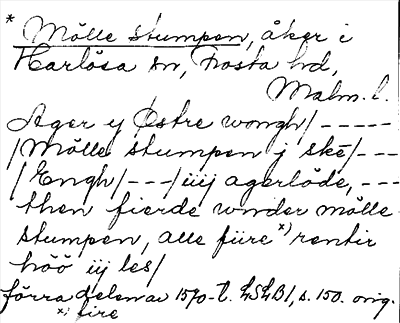 * Mölle stumpen, åker i
Harlösa sn, Frosta hd,
Malm. l.
Ager y Østre wongh/-----
/Mölle stumpen j ske/---
/Engh/---/iiij agerlöde,---
then fierde wnder mölle
stumpen, alle fiire x) rentir
höö iij les/
förra delen av 1570-t. LSLB1, s. 150. orig.
x) fire